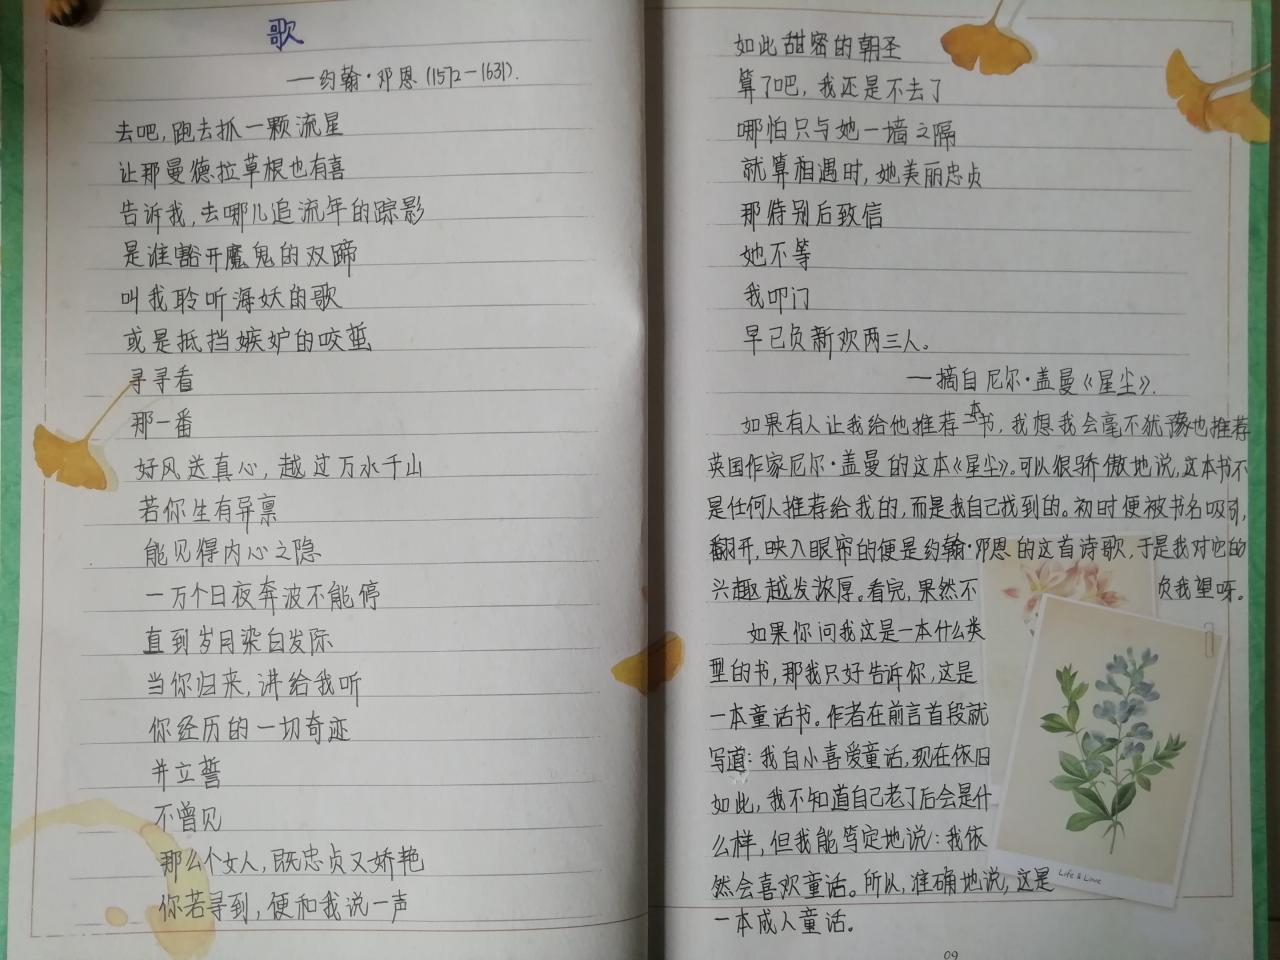 歌
——约翰·邓恩(1572-1631).
去吧,跑去抓一颗流星
让那曼德拉草根也有喜
告诉我,去哪儿追流年的踪影
是谁豁开魔鬼的双蹄
叫我聆听海妖的歌
或是抵挡嫉妒的咬蜇
寻寻看
那一番
好风送真心,越过万水千山
若你生有异禀
能见得内心之隐
一万个日夜奔波不能停
直到岁月染白发际
当你归来,讲给我听
你经历的一切奇迹
并立誓
不曾见
那么个女人,既忠贞又娇艳
你若寻到,便和我说一声
如此甜蜜的朝圣
算了吧,我还是不去了
哪怕只与她一墙之隔
就算相遇时,她美丽忠贞
那待别后致信
她不等
我叩门
早已负新欢两三人。
——摘自尼尔·盖曼《星尘》.
如果有人让我给他推荐一本书,我想我会毫不犹豫地推荐
英国作家尼尔·盖曼的这本《星尘》。可以很骄傲地说,这本书不
是任何人推荐给我的,而是我自己找到的。初时便被书名吸引,
翻开,映入眼帘的便是约翰·邓恩的这首诗歌,于是我对它的
兴趣越发浓厚。看完,果然不负我望呀。
如果你问我这是一本什么类
型的书,那我只好告诉你,这是
一本童话书。作者在前言首段就
写道:我自小喜爱童话,现在依旧
如此,我不知道自己老了后会是什
么样,但我能笃定地说:我依
然会喜欢童话。所以,准确地说,这是
一本成人童话。
Life & Love
09